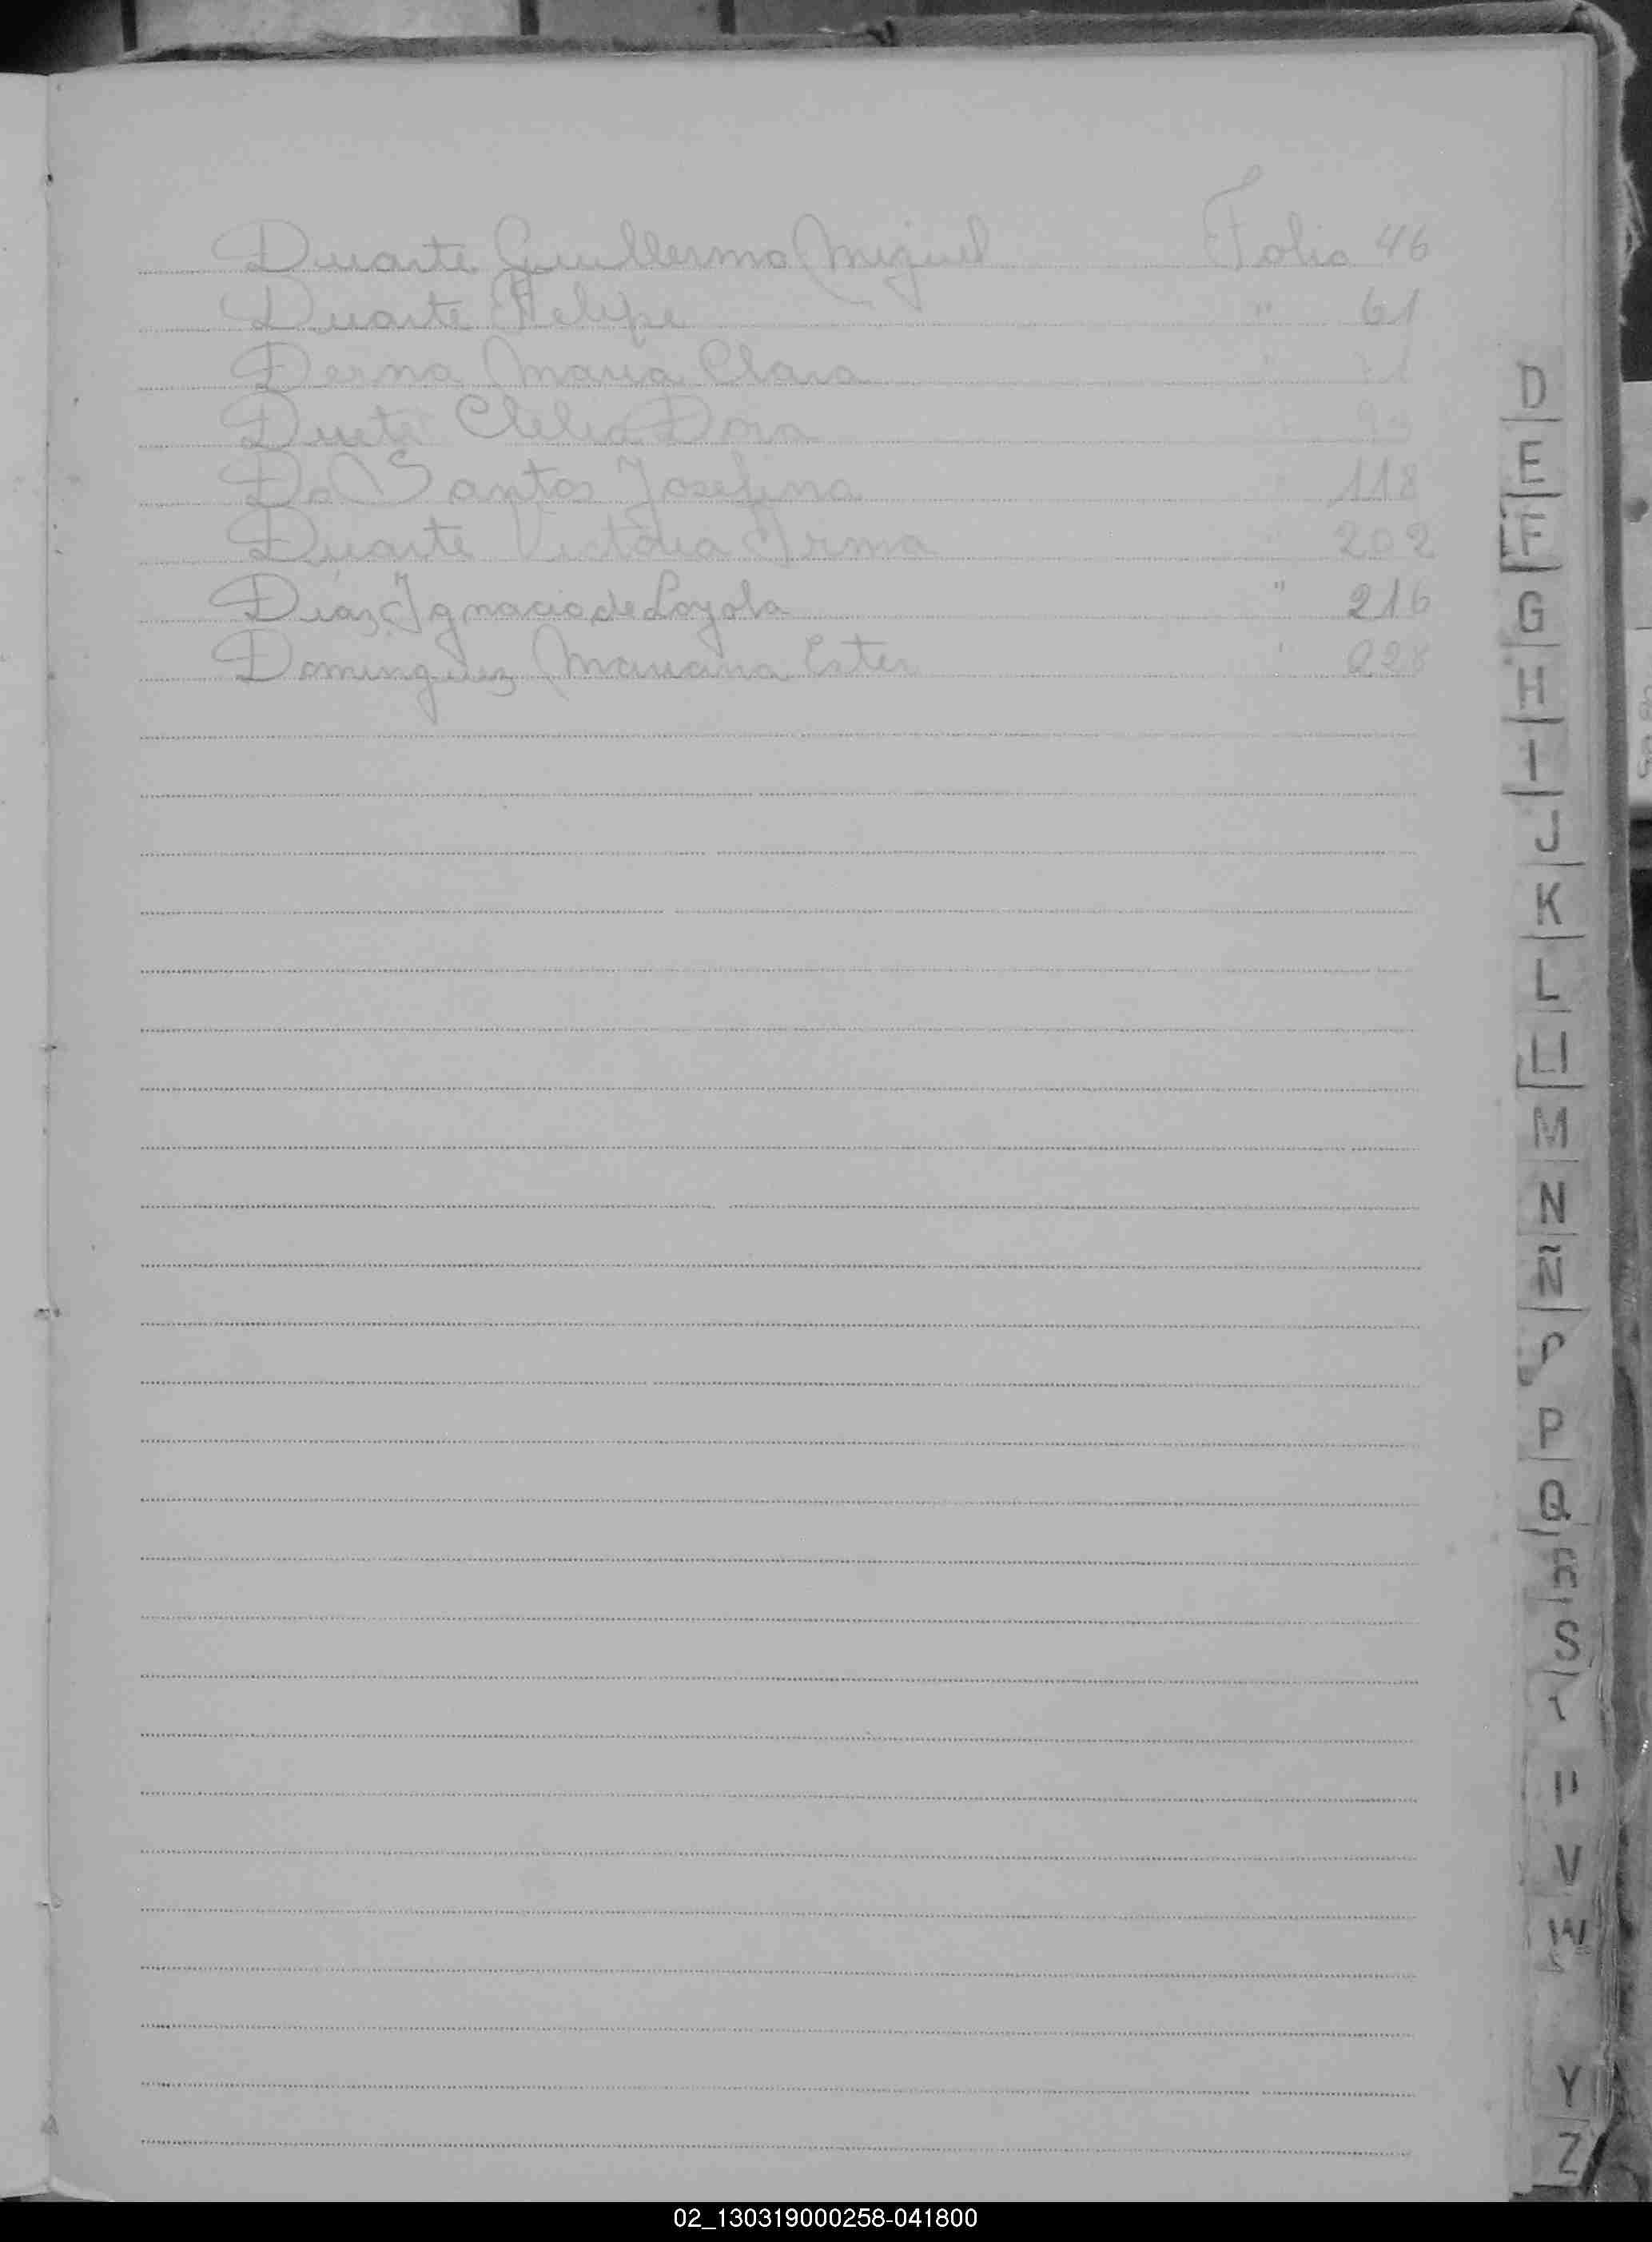 Duarte Guillermo Miguel Folio 46
Duarte Felipe " 61
Derna Maria Clara
Clelia Dora
Do Santos Josefina 118
Duarte Victoria Irma 202
Diaz Ignacio de Loyola " 216
Dominguez Mariana Ester 228
D
E
F
G
H
I
J
K
L
LL
M
N
Ñ
P
Q
R
S
V
W
Y
Z
02_130319000258-041800